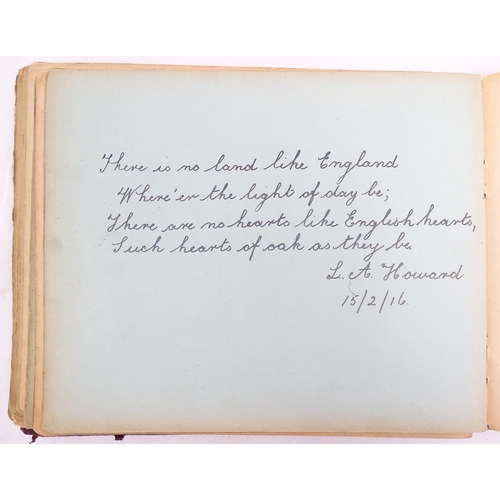 There is no land like England
Where'er the light of day be;
There are no hearts like English hearts,
Such hearts of oak as they be.
L. A. Howard
15/2/16.